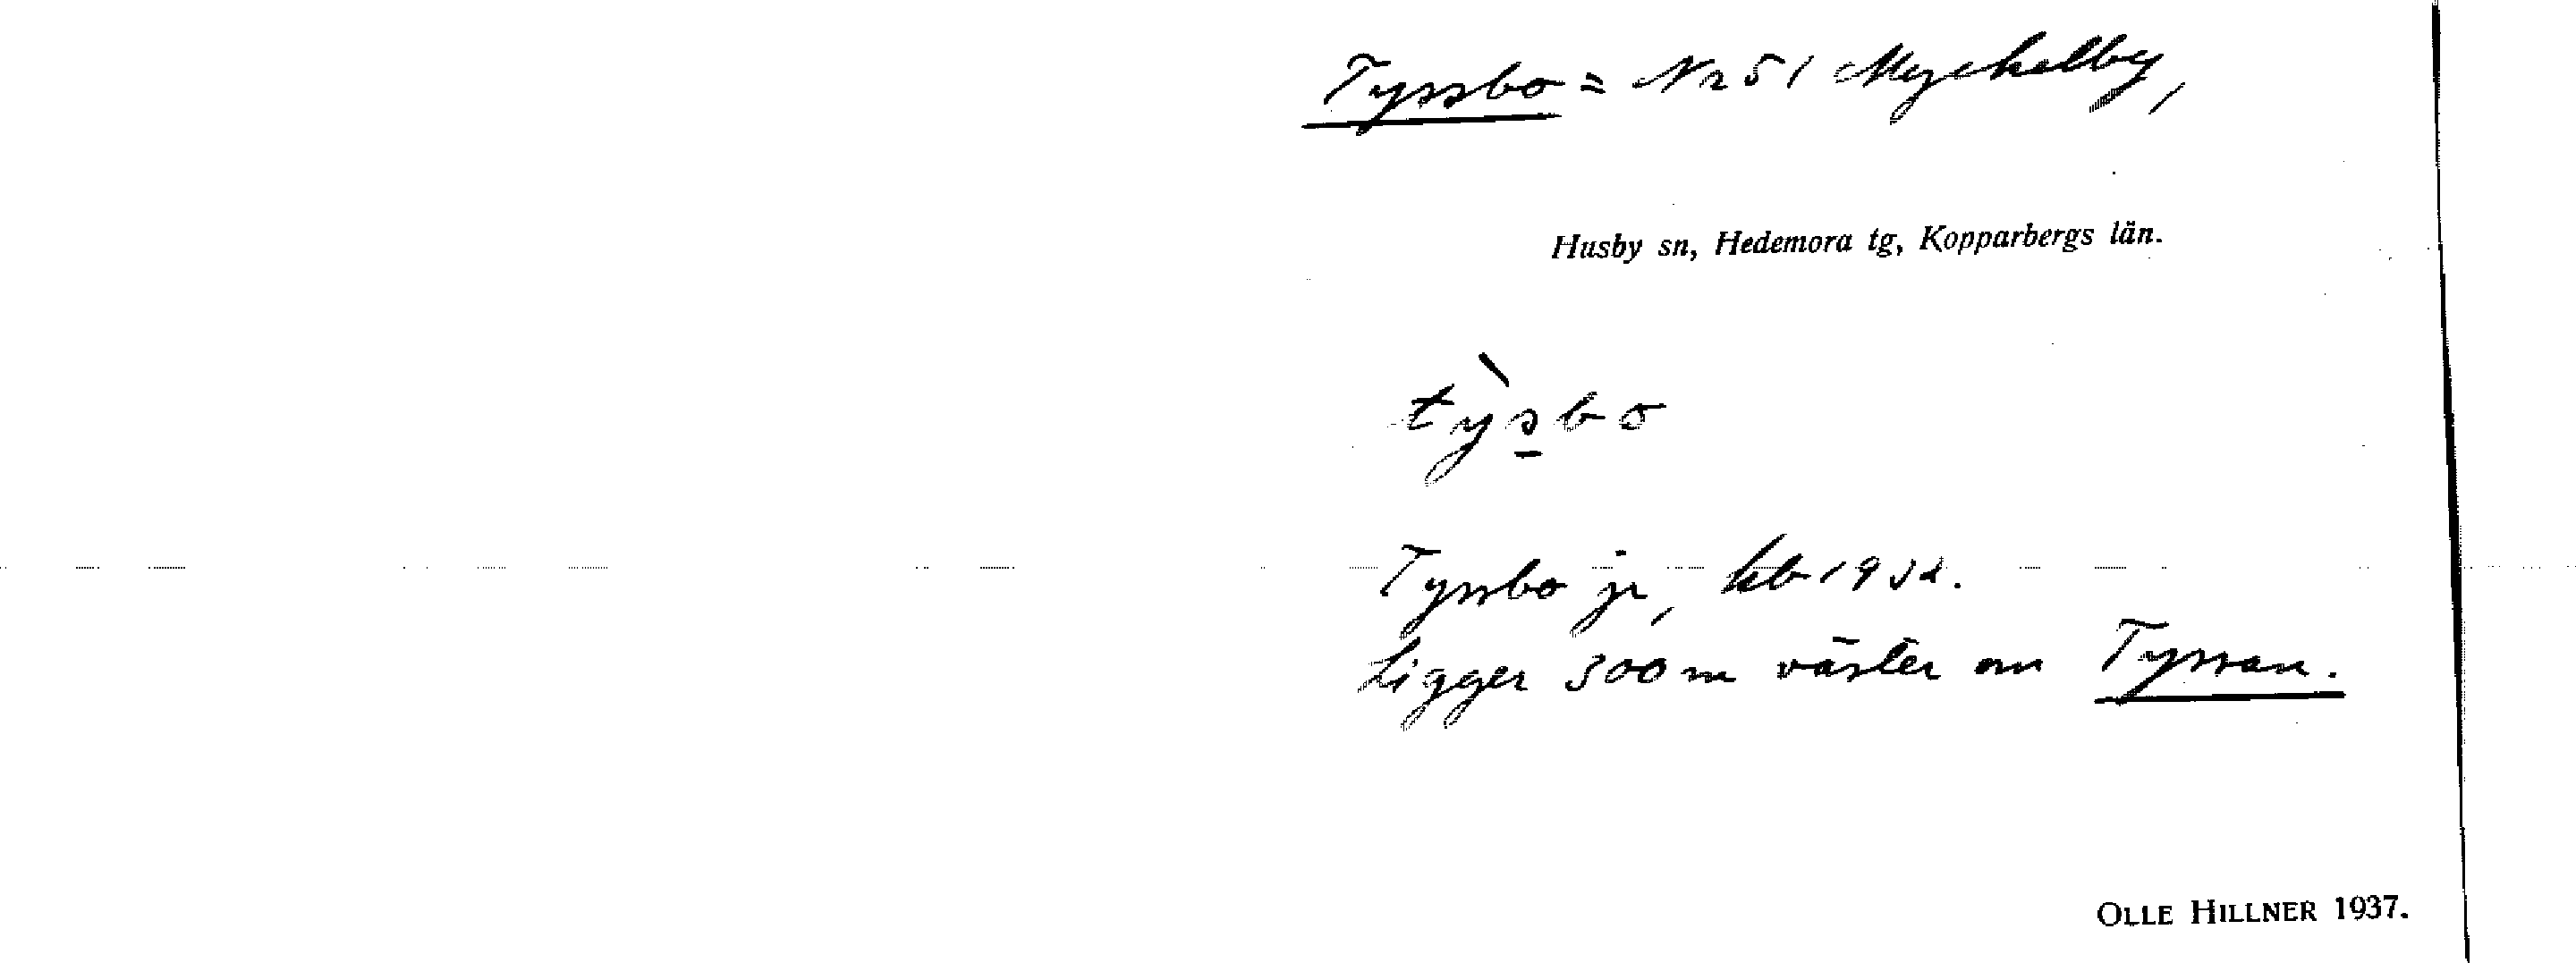 Tyssbo = Nr 51 Myckelby,
Husby sn, Hedemora tg, Kopparbergs län.
tỳsbo
Tyssbo jr, kb 1932.
Ligger 300 m väster om Tyssan.
OLLE HILLNER 1937.